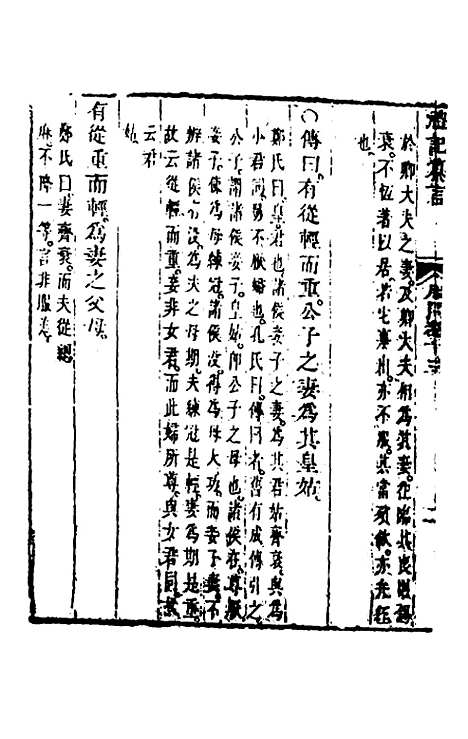 禮記集言
於卿大夫之妻及卿大夫相為其妻往臨其喪則錫
衰不恒著以居若
亦不服其當殯斂亦
也
○傳曰有從輕而重公子之妻為其皇姑
鄭氏曰皇君也諸侯妾子之妻為其君姑齊衰與為
小君同舅不厭婦也孔氏曰傳曰者舊有成傳引之
公子謂諸侯妾子皇姑即公子之母也諸侯在尊厭
妾子使為母練冠諸侯沒得為母大功而妾子妻不
辨諸侯存沒為夫之母期夫練冠是輕妻為期是重
故云從輕而重妾非女君而此婦所尊與女君同故
云君
姑
有從重而輕為妻之父母
鄭氏曰妻齊衰而夫從緦
麻不降一等言非服差